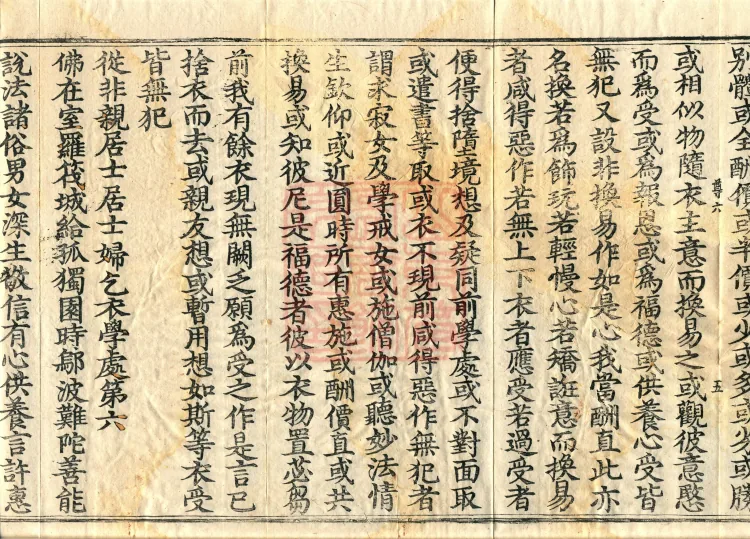 別體或全酬價或半價或少或多或劣或勝
尊六
五
或相似物隨衣主意而換易之或觀彼意慜
而爲受或爲報恩或爲福德或供養心受皆
無犯又設非換易作如是心我當酬直此亦
名換若爲飾玩若輕慢心若矯誑意而換易
者咸得惡作若無上下衣者應受若過受者
便得捨墮境想及疑同前學處或不對面取
或遣書等取或衣不現前咸得惡作無犯者
謂求寂女及學戒女或施僧伽或聽妙法情
生欽仰或近圓時所有惠施或酬價直或共
換易或知彼尼是福德者彼以衣物置苾芻
前我有餘衣現無闕乏願爲受之作是言已
捨衣而去或親友想或暫用想如斯等衣受
皆無犯
從非親居士居士婦乞衣學處第六
佛在室羅筏城給孤獨園時鄔波難陀善能
說法諸俗男女深生敬信有心供養言許惠